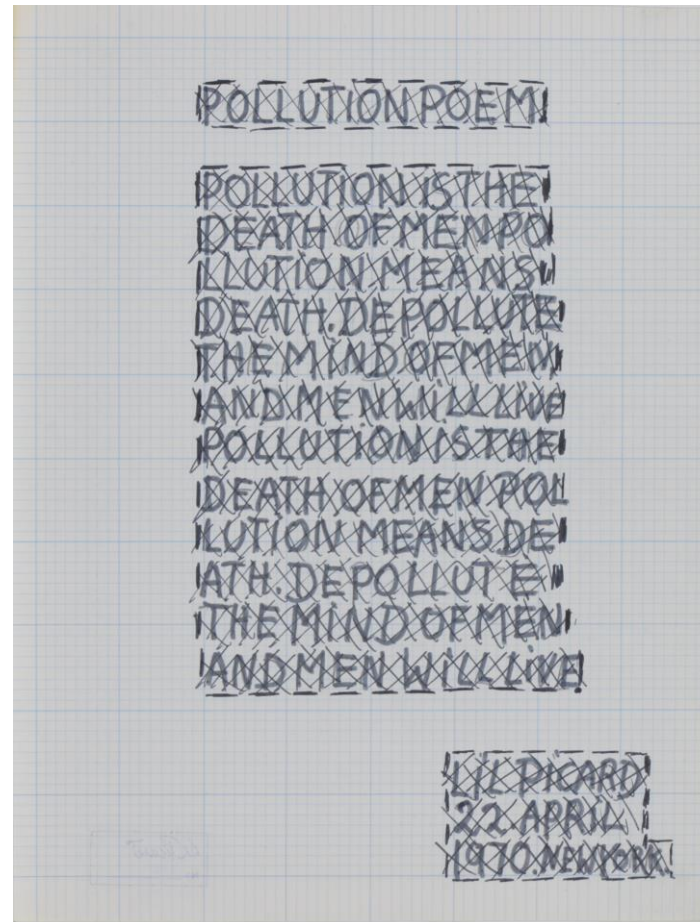 POLLUTION POEM
POLLUTION IS THE
DEATH OF MEN PO
LLUTION MEANS
DEATH. DEPOLLUTE
THE MIND OF MEN
AND MEN WILL LIVE
POLLUTION IS THE
DEATH OF MEN POL
LUTION MEANS DE
ATH. DEPOLLUTE
THE MIND OF MEN
AND MEN WILL LIVE
LIL PICARD
22 APRIL
1970. NEW YORK.